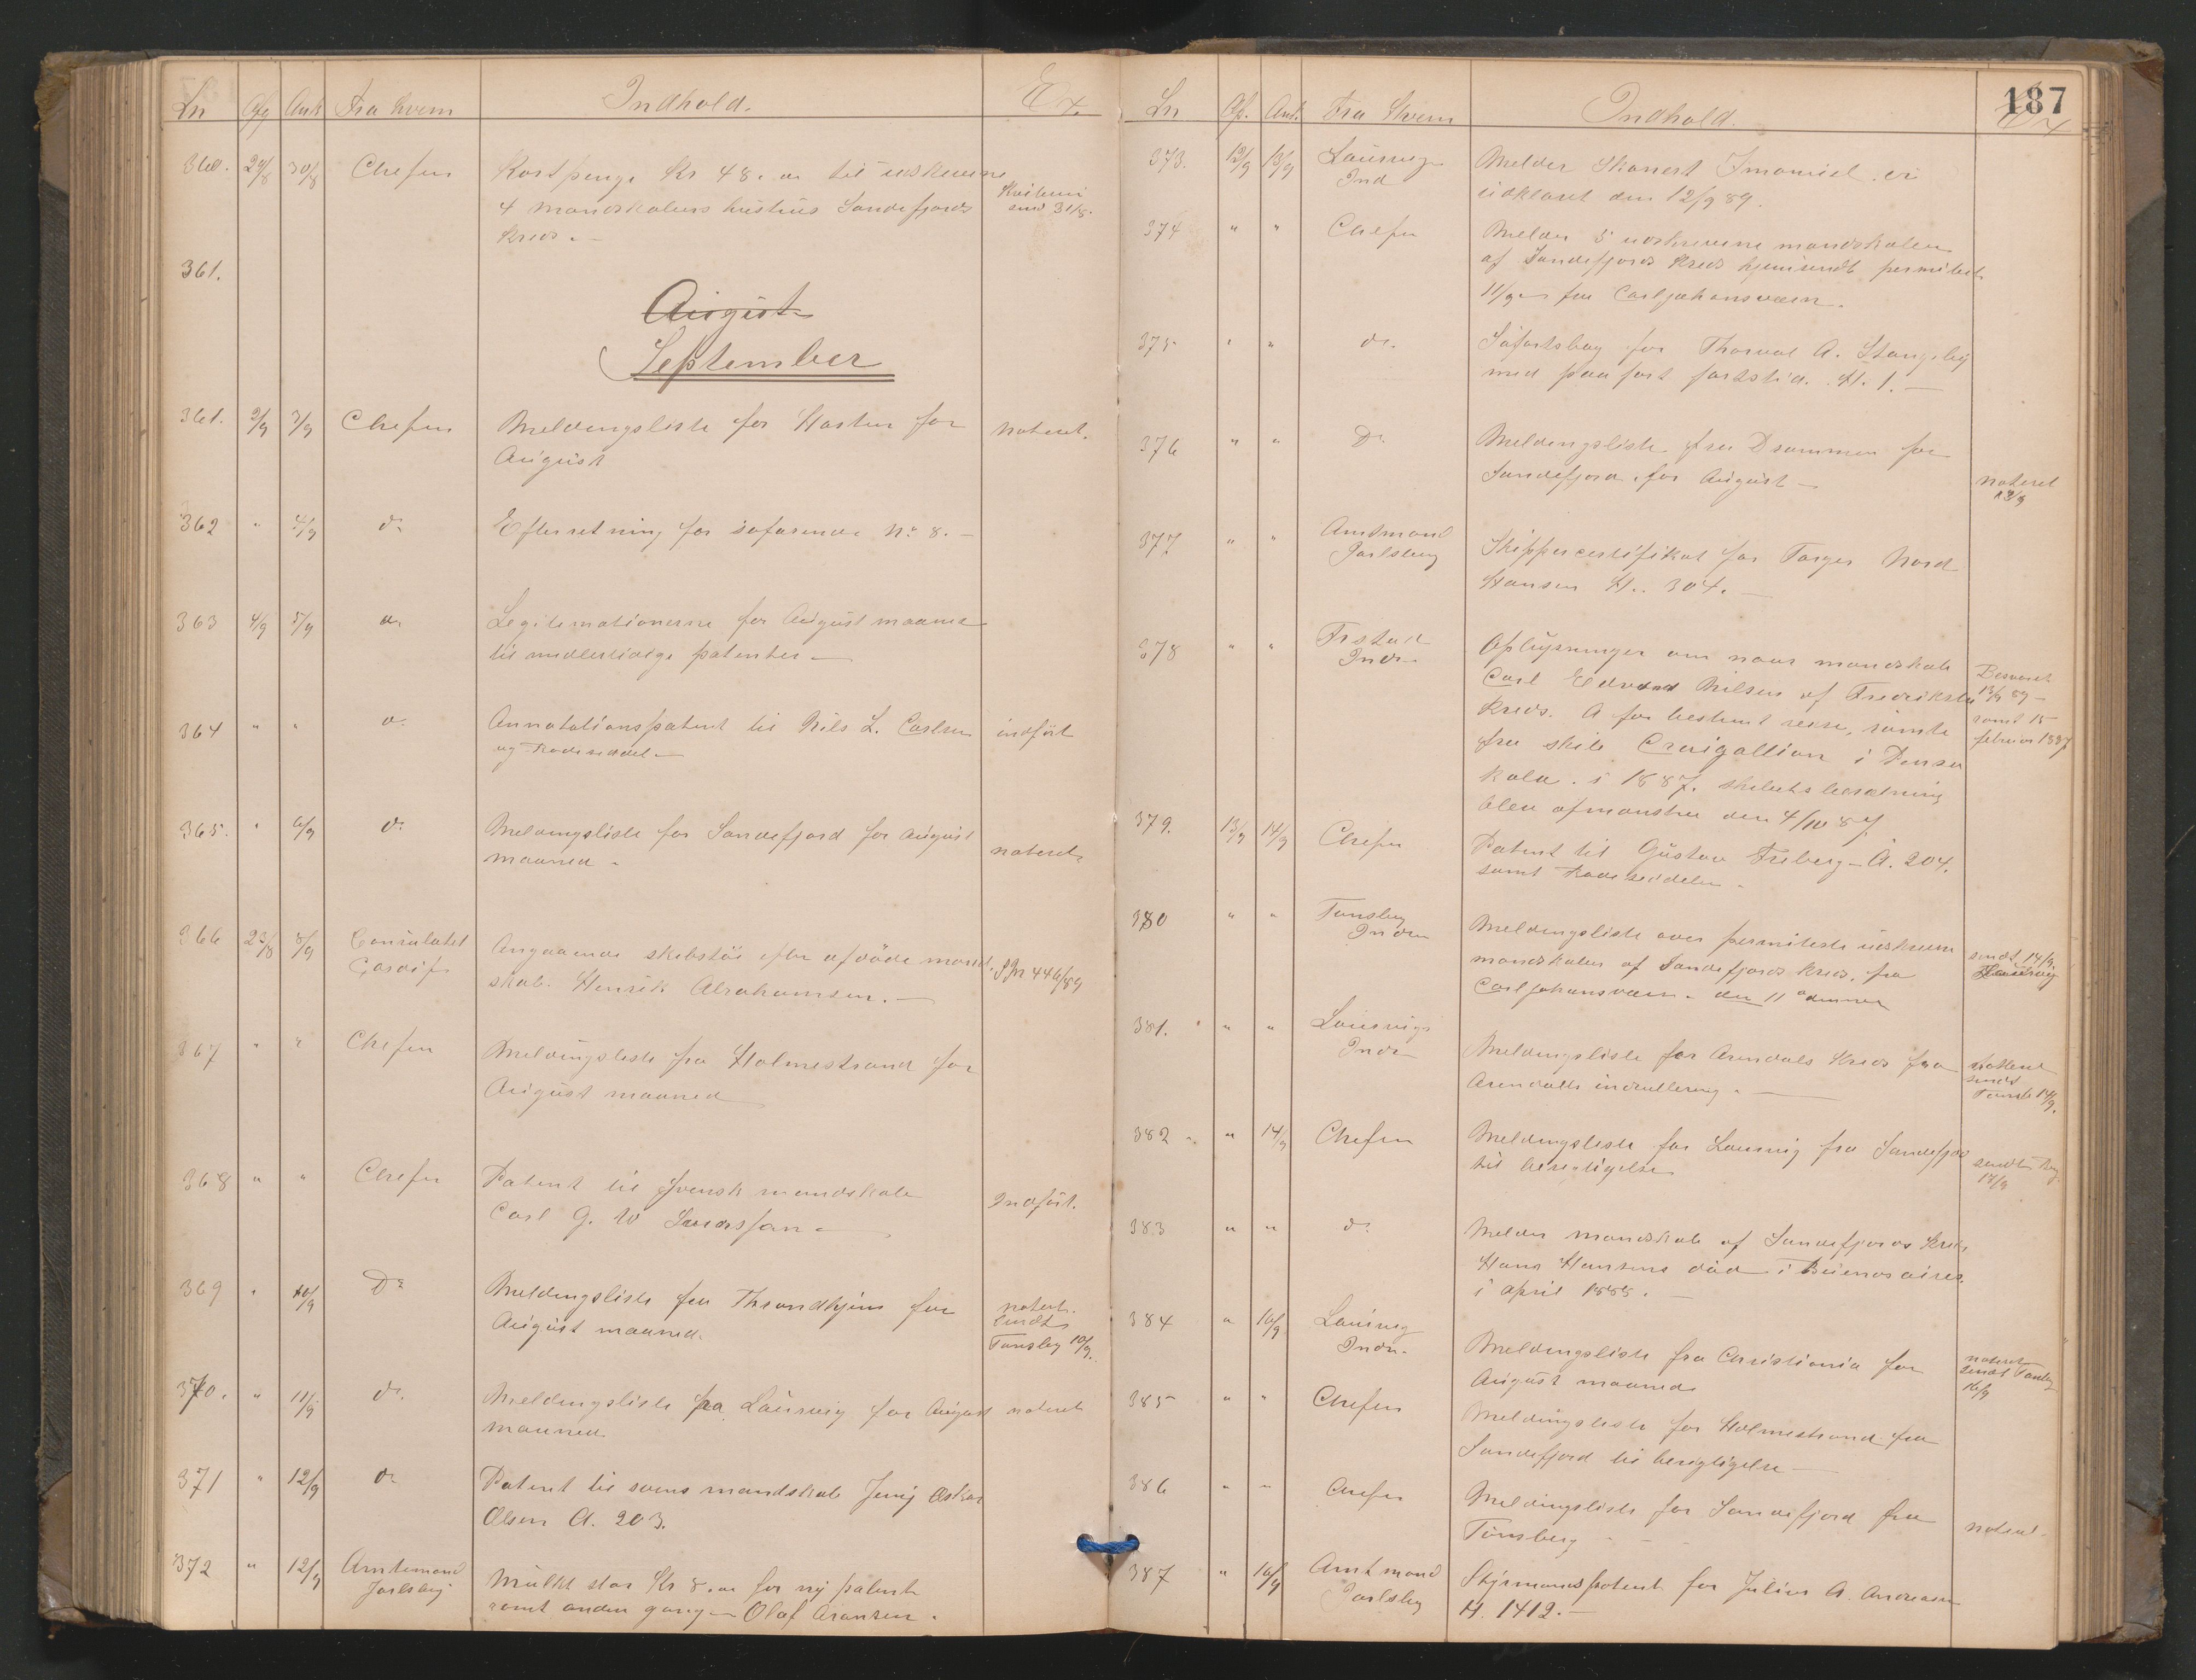 Ln Afg Ank Fra hvem Indhold. Ex.
360. 29/8 30/8 Chefen Kostpenge Kr 48. til udskrevne
4 mandskabers hustrus Sandefjords
Kreds. –
send 31/8.
361.
August
September
361. 2/9 3/9 Chefen Meldingsliste for Horten for noteret.
August
362 " 4/9 do Efterretning for søfarende No 8. –
363 4/9 5/9 do Legitimationerne for August maaned
til midlertidige patenter –
364 " " do Annotationspatent til Nils L. Carlsen indført
og Rodeseddel –
365. " 6/9 do Meldingsliste for Sandefjord for August
maaned – noteret
366 23/8 8/9 Consulatet Angaaende skibstøi efter afdøde mand-
Cardiff skab. Henrik Abrahamsen. – 446/89
367 " " Chefen Meldingsliste fra Holmestrand for
August maaned
368 " " Chefen Patent til svensk mandskab
Carl G. W – Indført.
369 " 10/9 Do Meldingsliste fra Throndhjem for noteret.
August maaned. sendt
Tønsberg 10/9.
370. " 11/9 do Meldingsliste fra Laurvig for August noteret
maaned
371 " 12/9 do Patent til svens mandskab Oskar
Olsen A. 203.
372 " 12/9 Amtmand Mulkt stor Kr 8. for ny patent
Jarlsberg samt anden gang – Olaf
187
Ln Af. Ank. Fra Hvem Indhold. Ex
373. 12/9 13/9 Laurvigs Melder Skonert Imanuel er
Ind udklaret den 12/9 89.
374 " " Chefen Melder 5 udskrevne mandskaber
af Sandefjords Kreds hjemsendt permiteret
11/9 fra Carljohansværn.
375 " " do. Søfartsbog for Thorval A. Stangeby
med paaført fartstid. H. 1. –
376 " " Do Meldingsliste fra Drammen for
Sandefjord, for August – noteret
13/9
377 " " Amtmand
Jarlsberg Skippercertifikat for Torger Nord
Hansen H. 304. –
378 " " Frstad Oplysninger om naar mandskab
Indr. Carl Edvard Nilsen af Fredrikstad Besvaret
Kreds. A for bestemt reise, rømte 13/9 89 –
fra skib Craigallion i Pensa rømt 15
kola. i 1887. skibets besætning februar 1887
blev afmønstret den 4/10 87
379. 13/9 14/9 Chefen Patent til Gustav Friberg – A. 204.
samt Rodeseddelen –
380 " " Tønsberg Meldingsliste over permiterede udskrevne
Indru mandskaber af Sandefjords kreds, fra sendt 14/9
Carljohansværn – den 11 Laurvig
381. " " Laurvigs
Indr. Meldingsliste for Arendals Kreds fra noteret
Arendals indrullering. – sendt
Tønsb 14/9.
382 " 14/9 Chefen Meldingsliste for Laurvig fra Sandefjord
til berigtigelse sendt
14/9
383 " " do Melder mandskab af Sandefjords Kreds
Hans Hansens død i Buenos aires.
i april 1888. –
384 " 16/9 Laurvig
Indr. Meldingsliste fra Christiania for noteret
August maaned sendt Tønsberg
16/9
385 " " Chefen Meldingsliste for Holmestrand fra
Sandefjord til berigtigelse –
386 " " Chefen Meldingsliste for Sandefjord fra
Tønsberg – noteret
387 " 16/9 Amtmand Styrmandspatent for Julius A. Andreasen
Jarlsberg H. 1412. –